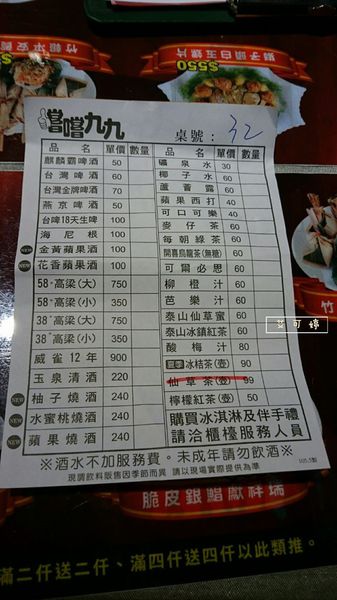 竹輕平安
獅子頭白玉螺片
$550
噹噹九九
桌號：32
品名 單價 數量
麒麟霸啤酒 50
台灣啤酒 60
台灣金牌啤酒 70
燕京啤酒 50
台啤18天生啤 100
海尼根 100
NEW 金黃蘋果酒 100
NEW 花香蘋果酒 100
58°高梁(大) 750
58°高梁(小) 350
38°高梁(大) 750
38°高梁(小) 350
威雀12年 900
玉泉清酒 220
NEW 柚子燒酒 240
水蜜桃燒酒 240
NEW 蘋果燒酒 240
單價 數量
礦泉水 30
椰子水 60
蘆薈露 60
蘋果西打 40
可口可樂 40
麥仔茶 60
每朝綠茶 60
開喜烏龍茶(無糖) 60
可爾必思 60
柳橙汁 60
芭樂汁 60
泰山仙草蜜 60
泰山冰鎮紅茶 60
酸梅汁 80
夏季 冰桔茶(壺) 90
仙草茶(壺) 99
檸檬紅茶(壺) 50
購買冰淇淋及伴手禮
請洽櫃檯服務人員
※酒水不加服務費。未成年請勿飲酒※
現調飲料販售因季節而異 請以現場實際提供為準
艾可婷
脆皮銀鯧獻祥瑞
滿二仟送二仟、滿四仟送四仟以此類推。